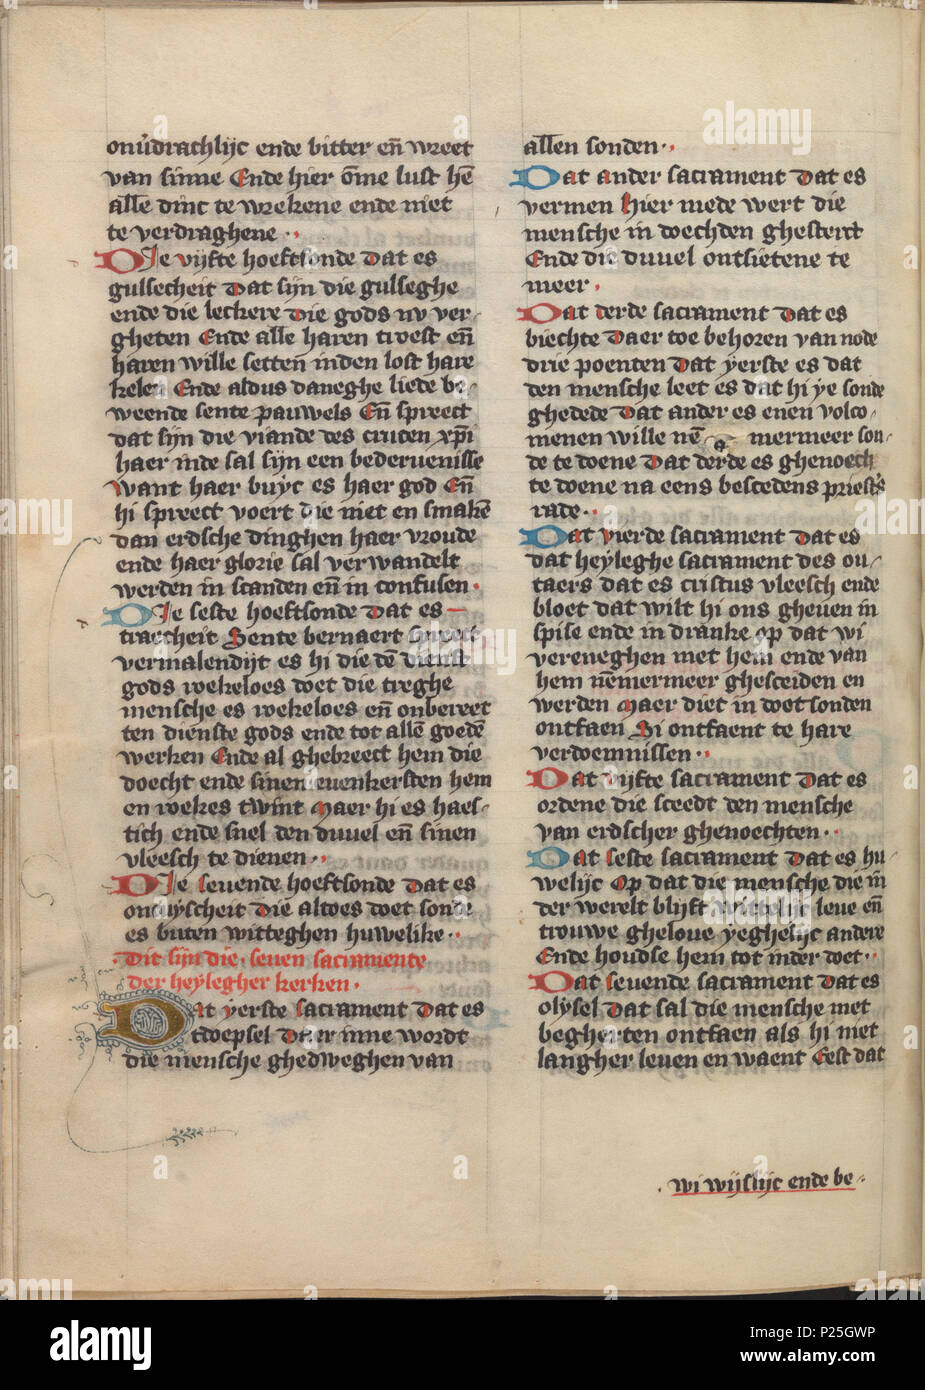 onv̓drachlijc ende bitter en̄ wreet
van sinne Ende hier ōme lust hē
alle dinc te wrekene ende niet
te verdraghene
DJe vijfte hoeftsonde Dat es
gulsecheit Dat sijn die gulseghe
ende die leckere Die gods nv ver-
gheten Ende alle haren troest en̄
haren wille setten inden lost hare
kelen Ende aldus daneghe liede be-
weende sente pauwels En̄ spreect
dat sijn die viande des crucen xp̄i
haer inde sal sijn een bederuenisse
want haer buyc es haer god En̄
hi spreect voert die niet en smakē
dan erdsche dinghen haer vroude
ende haer glorie sal verwandelt
werden in scanden en̄ in confusen.
DJe seste hoeftsonde Dat es
traecheit Sente bernaert spreect
vermalendijt es hi die dē dienst
gods roekeloes doet die treghe
mensche es roekeloes en̄ onbereet
ten dienste gods ende tot allē goedē
werken Ende al ghebreect hem die
doecht ende sinen euenkersten hem
en roekes twint Maer hi es haes-
tich ende snel den duuel en̄ sinen
vleesch te dienen.
DJe seuende hoeftsonde Dat es
oncuyscheit Die altoes doet sonde
es buten witteghen huwelike.
Dit sijn die seuen sacramente
der heyleghher kerken.
Dat yerste sacrament Dat es
doepsel Daer inne wordt
die mensche ghedweghen van
allen sonden.
Dat ander sacrament Dat es
vermen Hier mede wert die
mensche in doechden ghesterct
Ende die duuel ontsietene te
meer.
Dat derde sacrament Dat es
biechte Daer toe behoren van node
drie poenten Dat yerste es dat
den mensche leet es dat hi ye sonde
ghedede Dat ander es enen volco-
menen wille nē mermeer son-
de te doene Dat derde es ghenoech
te doene na eens bescedens priesters
rade.
Dat vierde sacrament Dat es
dat heyleghe sacrament des ou-
taers dat es cristus vleesch ende
bloet dat wilt hi ons gheuen in
spise ende in dranke op dat wi
vereneghen met hem ende van
hem nēmermeer ghesceiden en
werden Maer diet in doetsonden
ontfaen Si ontfaent te hare
verdoemnissen.
Dat vijfte sacrament Dat es
ordene die sceedt den mensche
van erdscher ghenoechten.
Dat seste sacrament Dat es hu-
welijc Op dat die mensche die in
der werelt blijft wittelijc leue en̄
trouwe gheloue yeghelijc andere
Ende houdse hem tot inder doet.
Dat seuende sacrament Dat es
olysel Dat sal die mensche met
begherten ontfaen als hi niet
langher leuen en waent Eest dat
wi wijslijc ende be-
alamy
Image ID: P25GWP
www.alamy.com